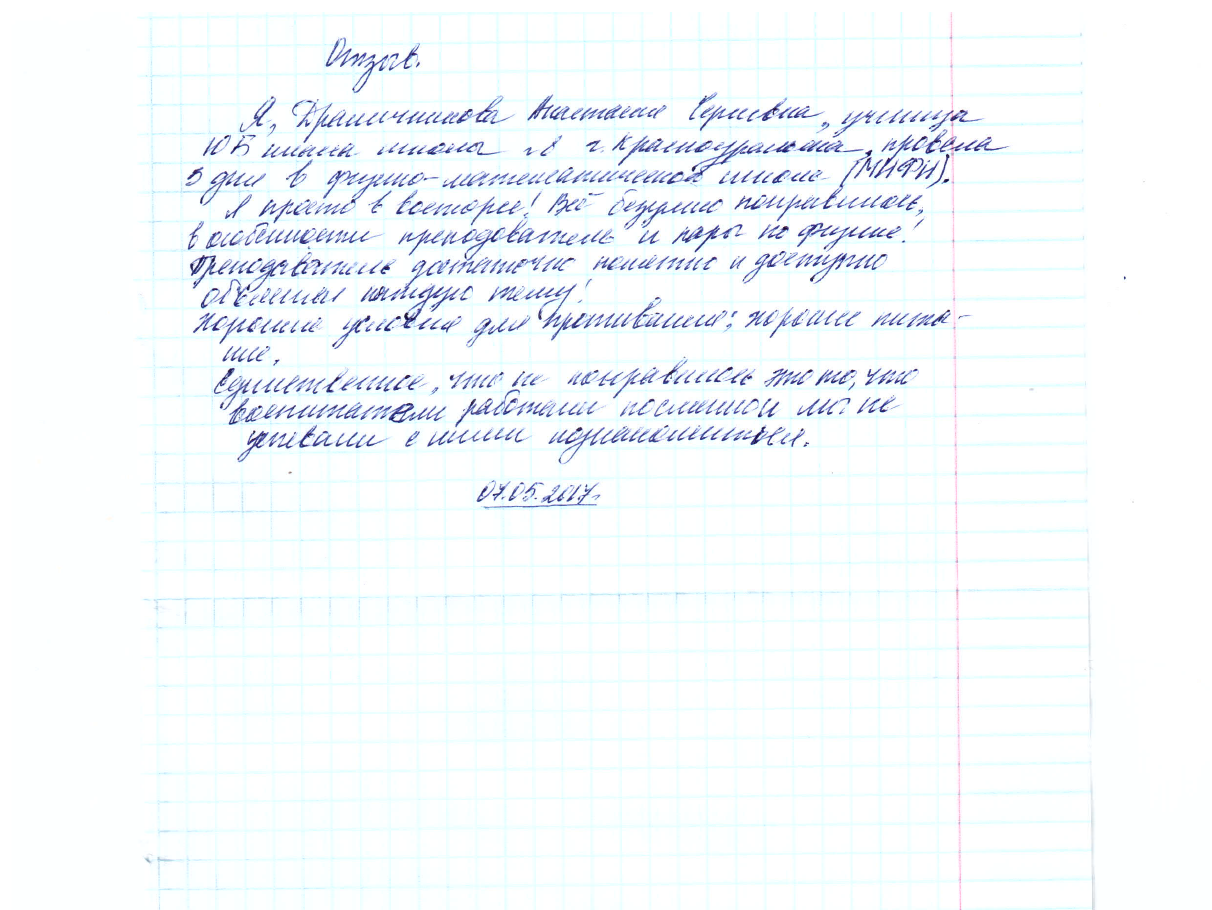 Отзыв.
Я, Драничникова Анастасия Сергеевна, ученица
10Б класса школы г. Красноуральска, провела
5 дней в физико-математической школе (МИФИ).
Я просто в восторге! Всё безумно понравилось,
в особенности преподаватель и пары по физике!
Преподаватель достаточно понятно и доступно
объяснял каждую тему!
Хорошие условия для проживания; хорошее пита-
ние.
Единственное, что не понравилось это то, что
воспитатели работали посменно и мы не
успевали с ними познакомиться.
07.05.2017г